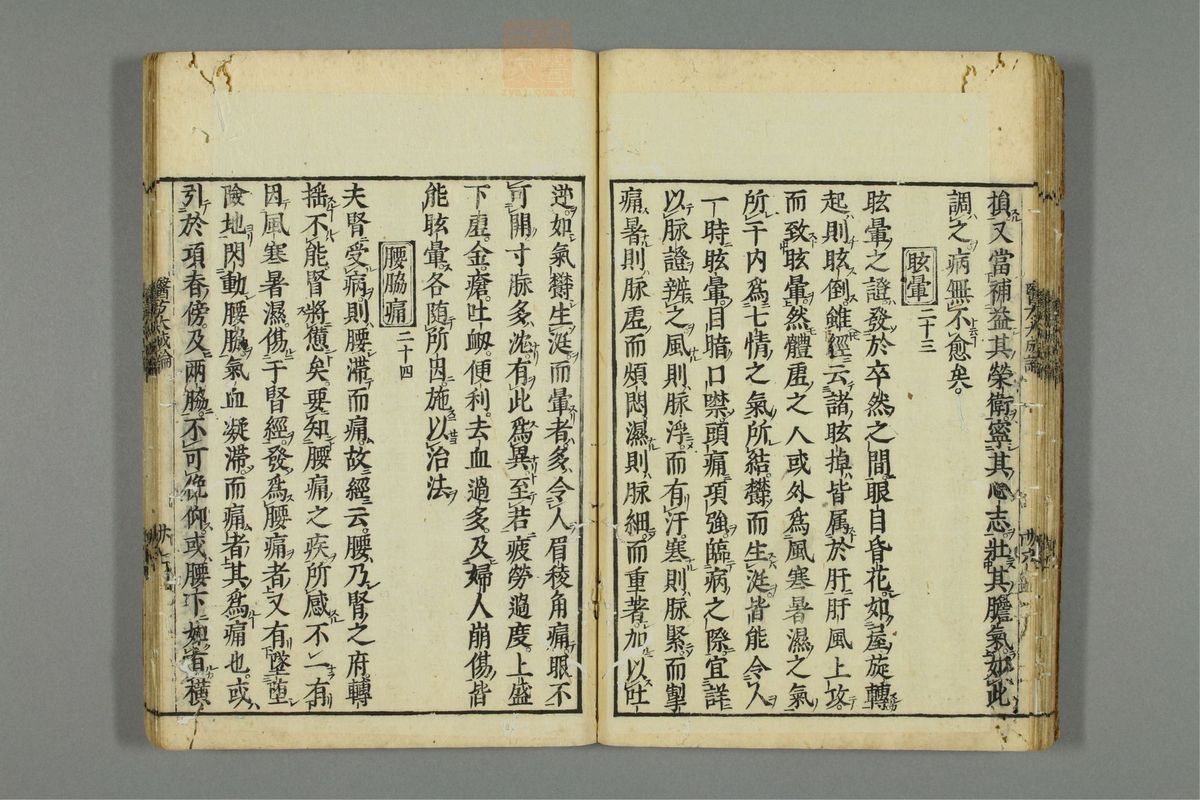 損又當補益其榮衛寧其心志壯其膽氣如此
調之病無不愈矣
眩暈 二十三
眩暈之證發於卒然之間眼目昏花如屋旋轉
起則眩倒雖經云諸眩掉皆属於肝肝風上攻
而致眩暈然體虛之人或外爲風寒暑濕之氣
所干内爲七情之氣所結欝而生涎皆能令人
一時眩暈目暗口噤頭痛項強臨病之際宜詳
以脉證辨之風則脉浮而有汗寒則脉緊而掣
痛暑則脉虛而煩悶濕則脉細而重著加以吐
逆如氣欝生涎而暈者多令人眉稜角痛眼不
可開寸脉多沈有此爲異至若疲勞過度上盛
下虛金瘡吐衂便利去血過多及婦人崩傷皆
能眩暈各随所因施以治法
腰脇痛 二十四
夫腎受病則腰滯而痛故經云腰乃腎之府轉
揺不能腎將憊矣要知腰痛之疾所感不一有
因風寒暑濕傷于腎經發爲腰痛者又有墜堕
險地閃動腰脇氣血凝滯而痛者其爲痛也或
引於項脊傍及兩脇不可俛仰或腰下如有横
醫方大成論